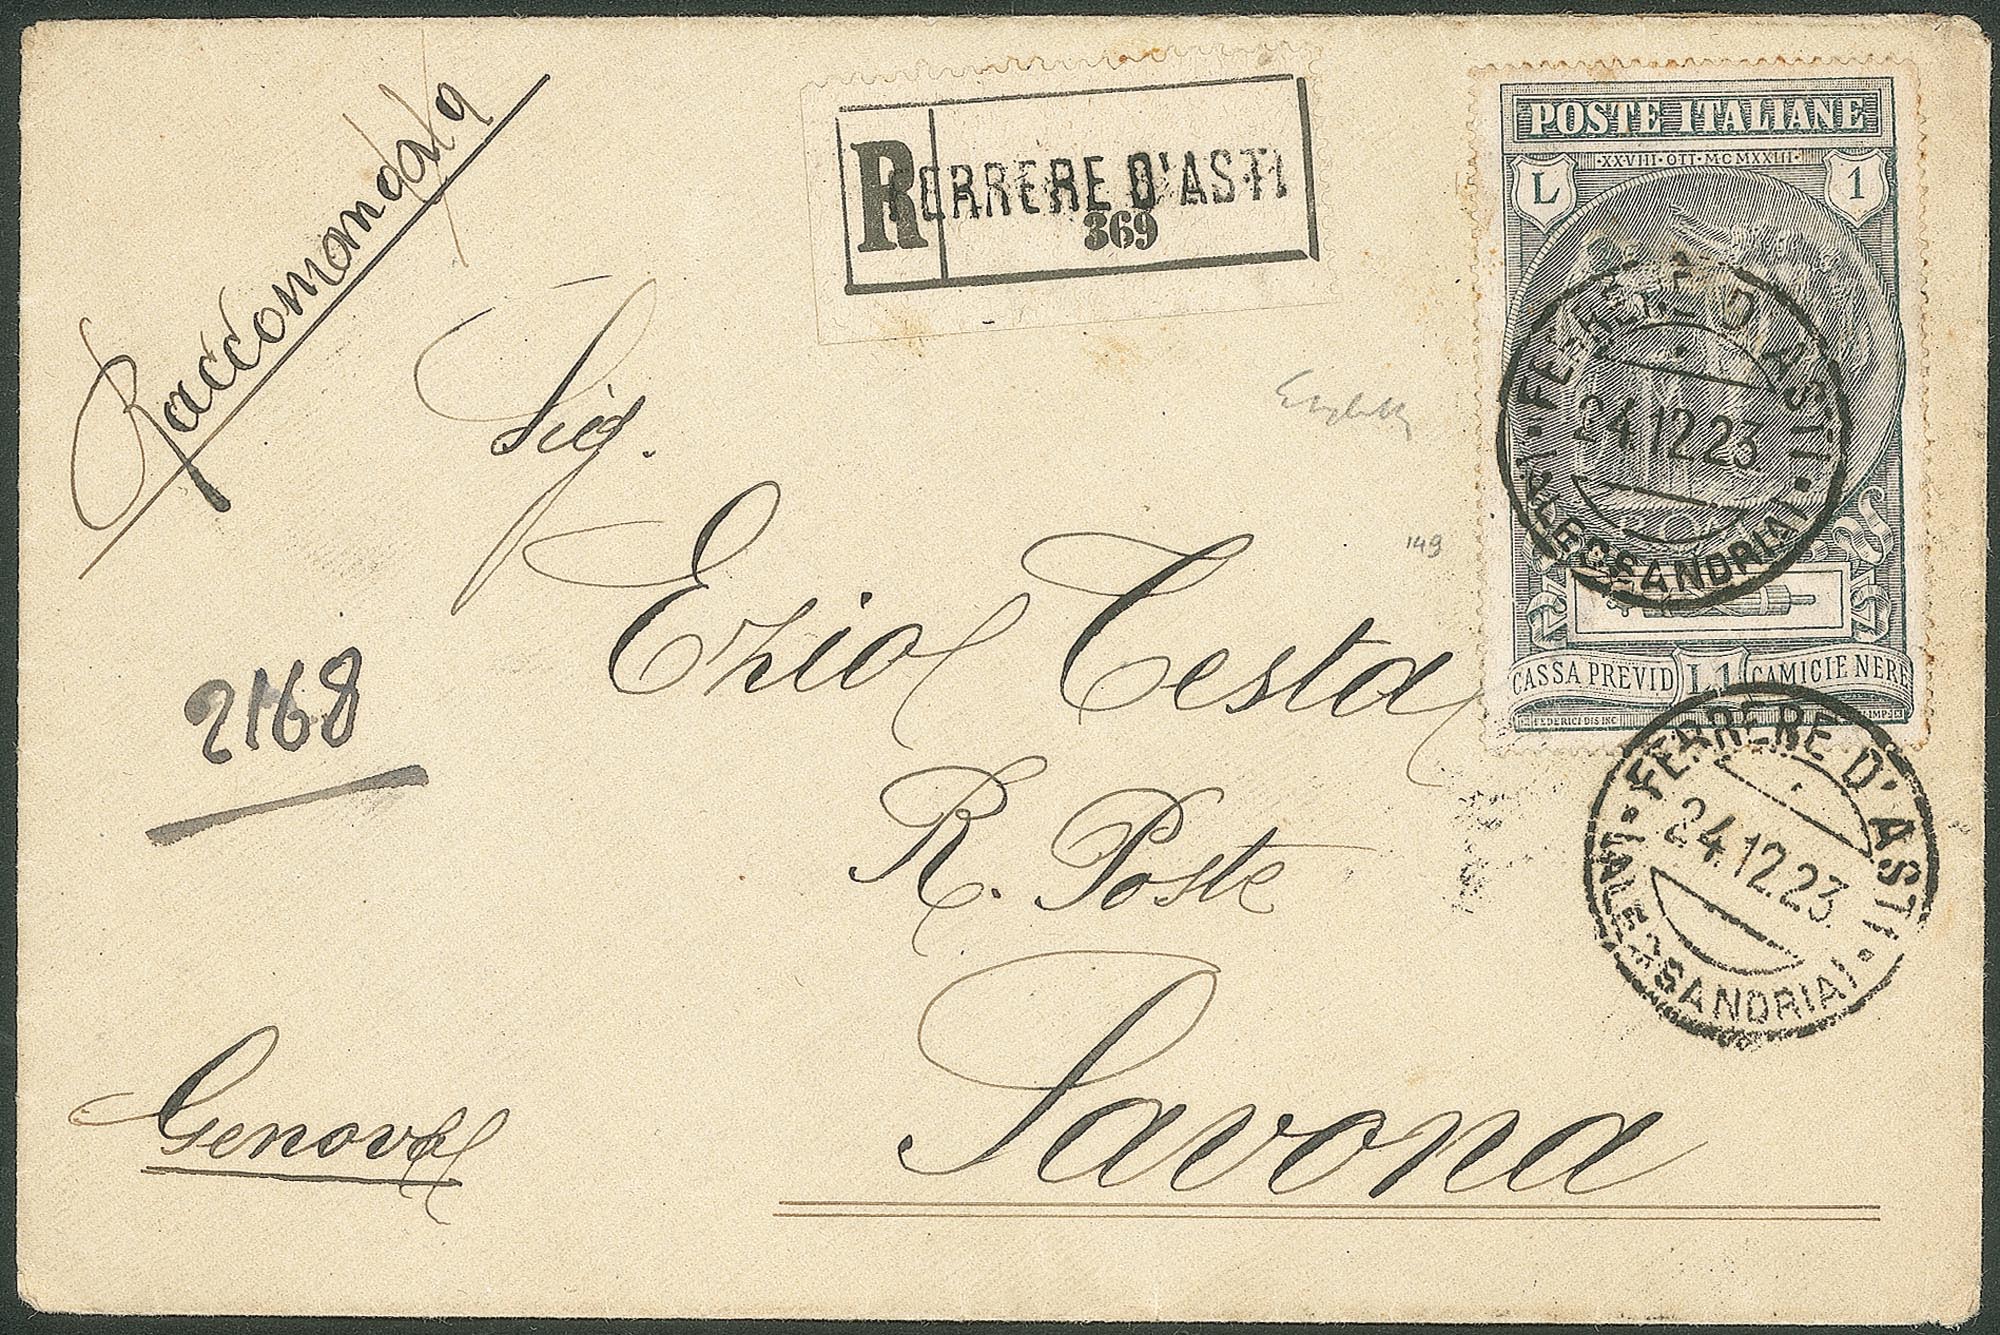 Raccomandata
R FERRERE D'ASTI
369
POSTE ITALIANE
·XXVIII·OTT·MCMXXIII·
L 1
FERRERE D'ASTI
24.12.23
(ALESSANDRIA)
CASSA PREVID L.1 CAMICIE NERE
FEDERICI DIS INC
Sig.
Ezio Testa
R. Poste
Savona
149
2168
Genova
FERRERE D'ASTI
24.12.23
(ALESSANDRIA)